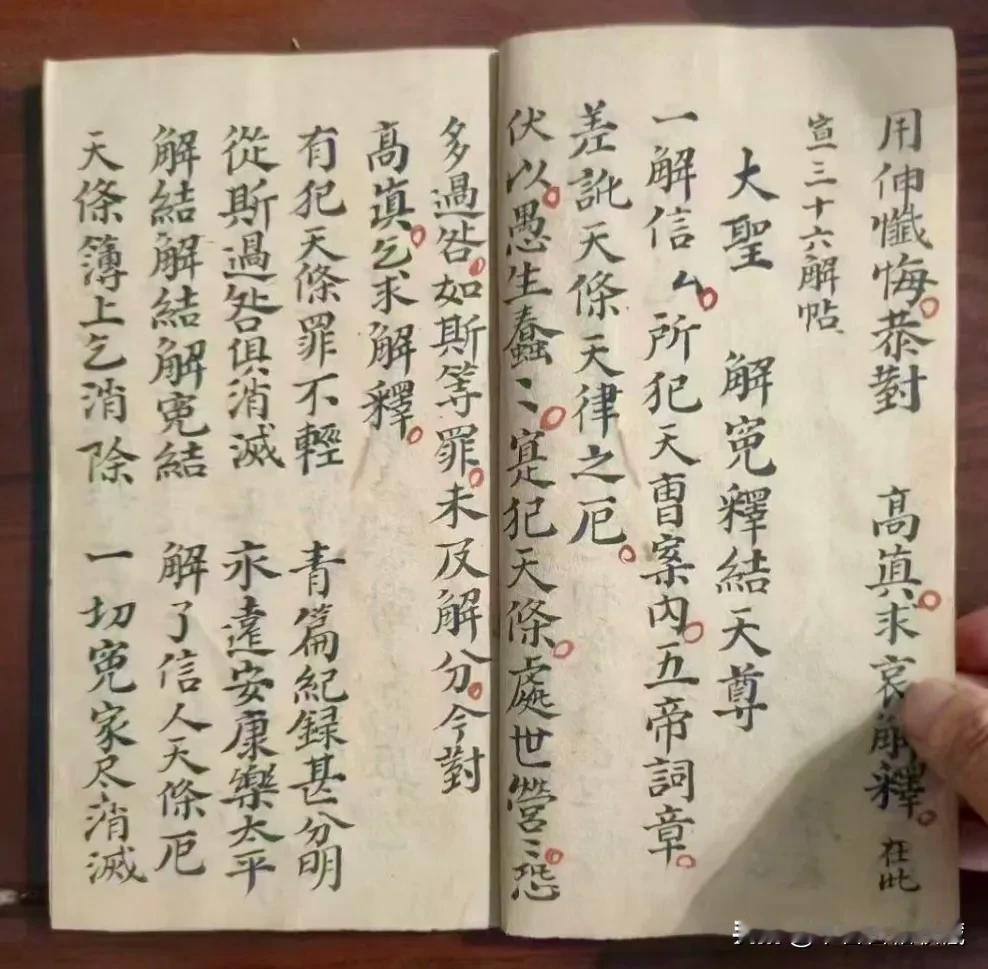 用伸懺悔。恭對　高真。求哀解釋。在此
宣三十六解帖
大聖　解寃釋結天尊
一解信厶。所犯天曹案內。五帝詞章。
差訛天條天律之厄。
伏以。愚生蠢〻。寔犯天條。處世營〻。恐
多過咎。如斯等罪。未及解分。今對
高真。乞求解釋。
有犯天條罪不輕　青篇紀録甚分明
從斯過咎俱消滅　永遠安康樂太平
解結解結解寃結　解了信人天條厄
天條簿上乞消除　一切寃家尽消滅